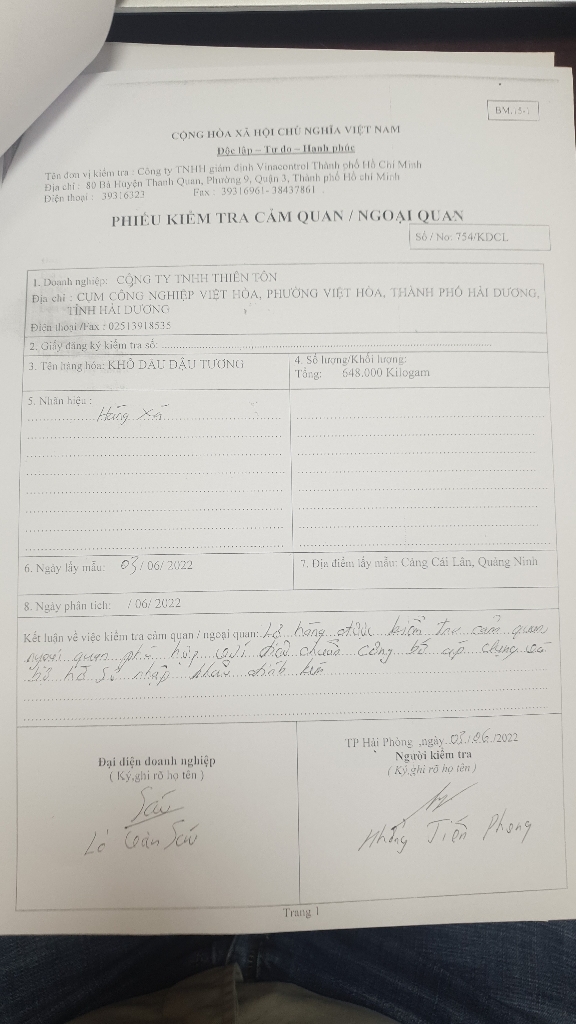 BM.15-1
CỘNG HÒA XÃ HỘI CHỦ NGHĨA VIỆT NAM
Độc lập – Tự do – Hạnh phúc
Tên đơn vị kiểm tra : Công ty TNHH giám định Vinacontrol Thành phố Hồ Chí Minh
Địa chỉ : 80 Bà Huyện Thanh Quan, Phường 9, Quận 3, Thành phố Hồ chí Minh
Điện thoại : 39316323 Fax : 39316961- 38437861
PHIẾU KIỂM TRA CẢM QUAN / NGOẠI QUAN
Số / No: 754/KDCL
1. Doanh nghiệp: CÔNG TY TNHH THIÊN TÔN
Địa chỉ : CỤM CÔNG NGHIỆP VIỆT HÒA, PHƯỜNG VIỆT HÒA, THÀNH PHỐ HẢI DƯƠNG,
TỈNH HẢI DƯƠNG
Điện thoại /Fax : 02513918535
2. Giấy đăng ký kiểm tra số:
3. Tên hàng hóa: KHÔ DẦU ĐẬU TƯƠNG
4. Số lượng/Khối lượng:
Tổng: 648.000 Kilogam
5. Nhãn hiệu :
Hàng Xá
6. Ngày lấy mẫu: 03/ 06/ 2022
7. Địa điểm lấy mẫu: Cảng Cái Lân, Quảng Ninh
8. Ngày phân tích: / 06/ 2022
Kết luận về việc kiểm tra cảm quan / ngoại quan: Lô hàng được kiểm tra cảm quan
ngoại quan phù hợp với tiêu chuẩn công bố áp dụng và
hồ sơ nhập khẩu
TP Hải Phòng ,ngày 03/06/2022
Đại diện doanh nghiệp
( Ký,ghi rõ họ tên )
Người kiểm tra
( Ký,ghi rõ họ tên )
Lê Sáu
Tiến Phong
Trang 1